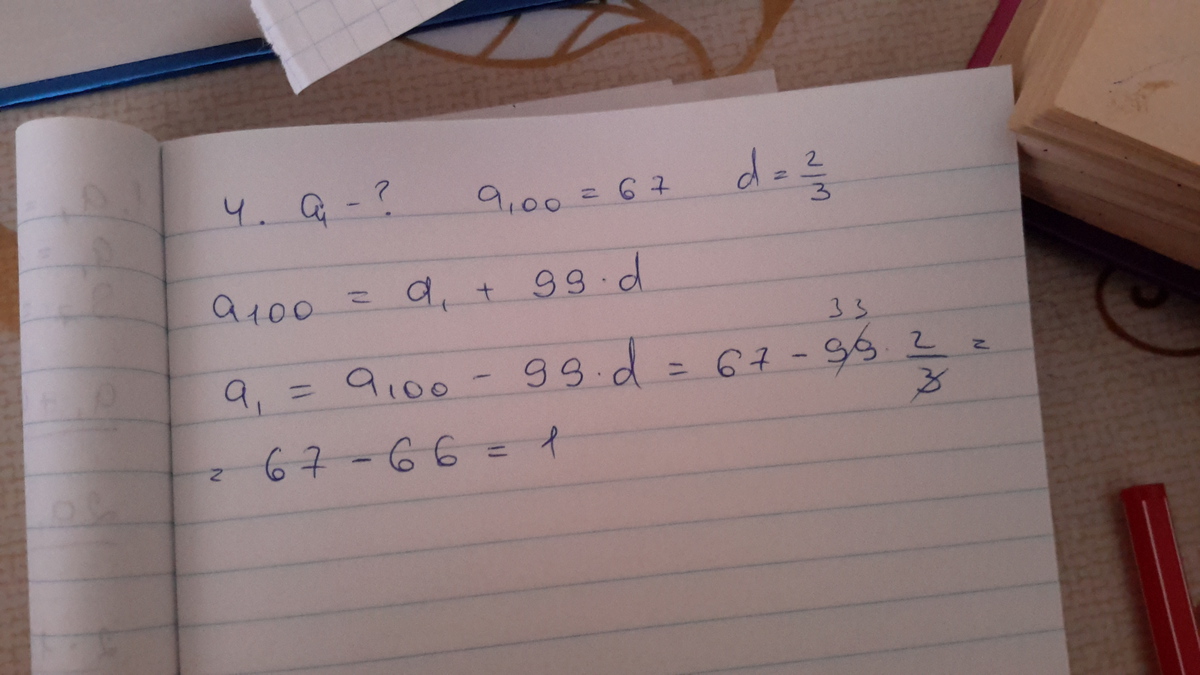 4. a₁ - ? a₁₀₀ = 67 d = 2/3
a₁₀₀ = a₁ + 99 · d
a₁ = a₁₀₀ - 99 · d = 67 - 99 · 2/3 =
33
= 67 - 66 = 1